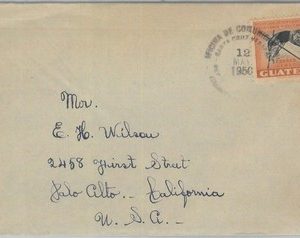 OFICINA DE COMUNIC
12
MAY
1950
GUATE
Mr.
E. H. Wilson
2458 First Street
Palo Alto - California
U. S. A.